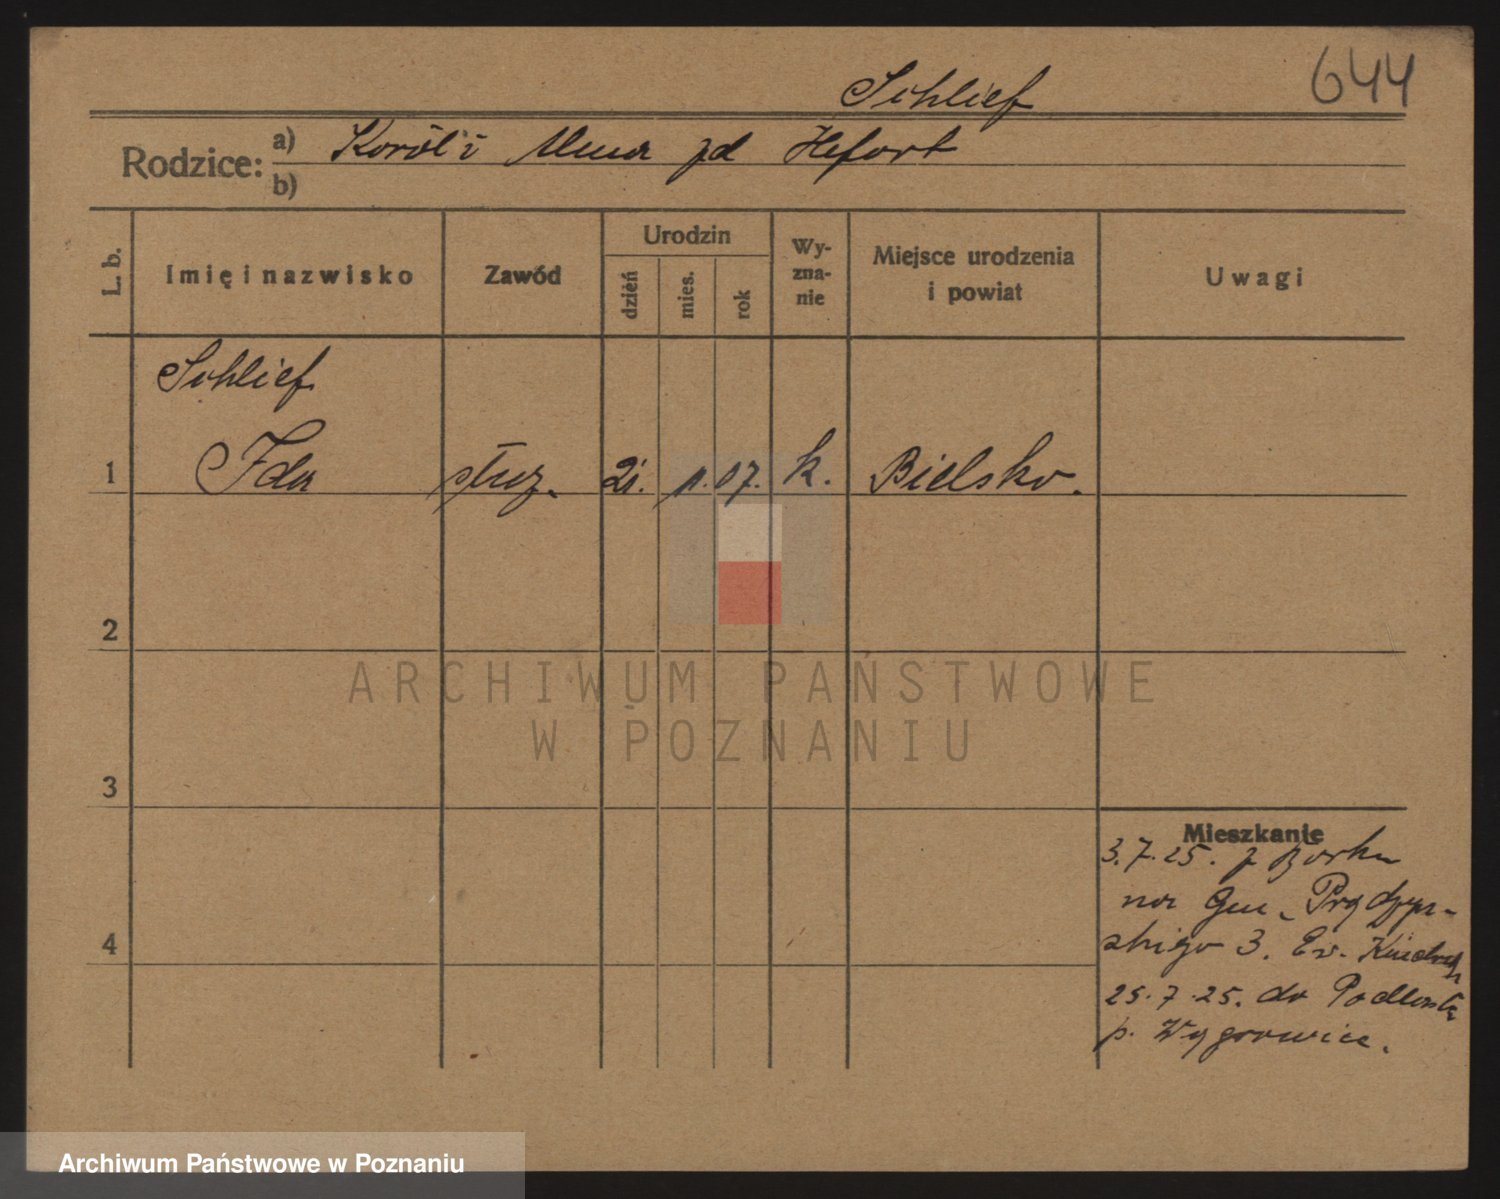 644
Schlief
Rodzice: a) Karol i Alma zd Hefort
b)
L. b.
Imię i nazwisko
Zawód
Urodzin
dzień
mies.
rok
Wy-
zna-
nie
Miejsce urodzenia
i powiat
Uwagi
Schlief
1 Ida służ. 21. 11. 07. k. Bielsko.
2
3
4
Mieszkanie
3.7.25. z Borku
na Gen. Prądzyń-
skiego 3.
25.7.25. do
p. Wągrowiec.
ARCHIWUM PAŃSTWOWE
W POZNANIU
Archiwum Państwowe w Poznaniu